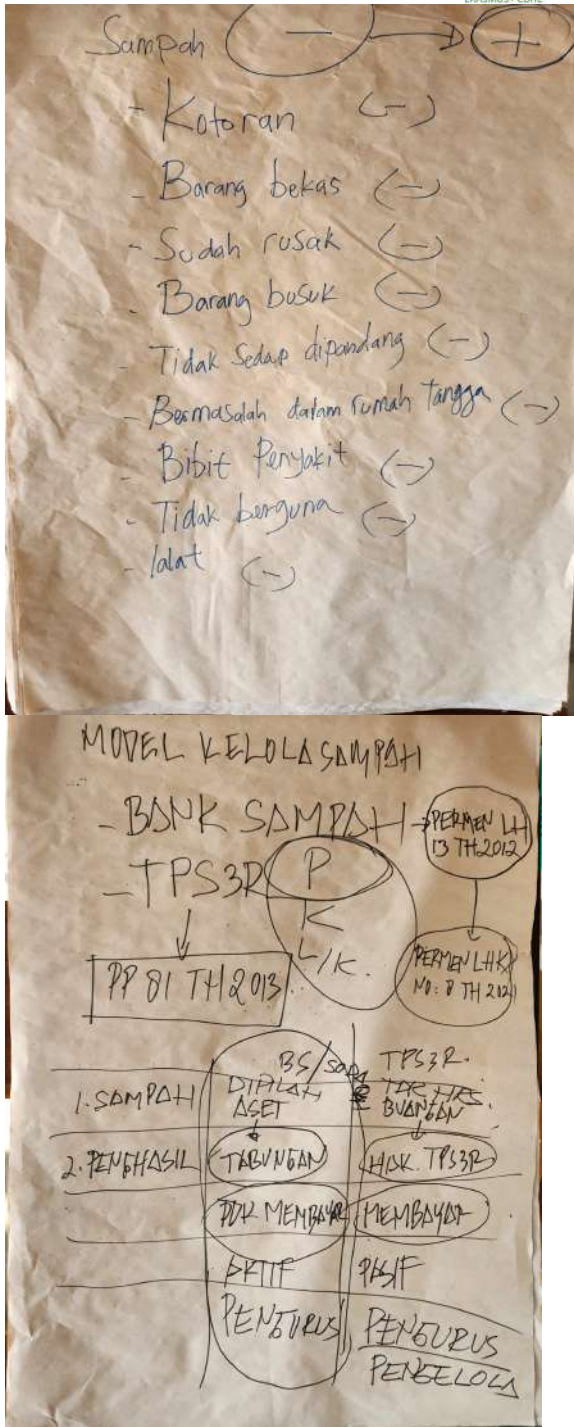 Sampah (-) → (+)
- Kotoran (-)
- Barang bekas (-)
- Sudah rusak (-)
- Barang busuk (-)
- Tidak Sedap dipandang (-)
- Bermasalah dalam rumah tangga (-)
- Bibit Penyakit (-)
- Tidak berguna (-)
- lalat (-)
MODEL KELOLA SAMPAH
- BANK SAMPAH → PERMEN LH
13 TH 2012
- TPS3R P
K
L/K.
PP 81 TH 2013
PERMEN LHK
NO: 8 TH 202
BS/ TPS3R.
1. SAMPAH DIPILAH
ASET BUANGAN
2. PENGHASIL TABUNGAN HAK. TPS3R
MEMBAYAR MEMBAYAR
AKTIF PASIF
PENGURUS PENGURUS
PENGELOLA